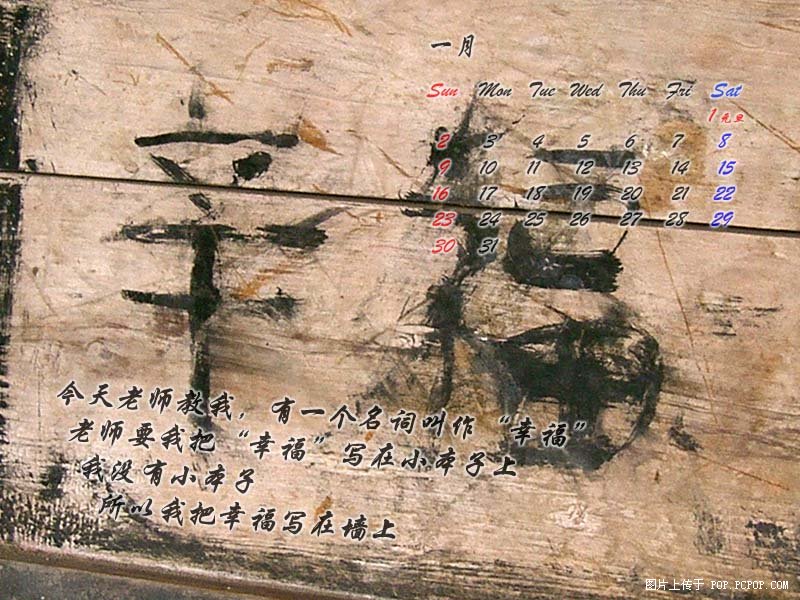 一月
Sun Mon Tue Wed Thu Fri Sat
1 元旦
2 3 4 5 6 7 8
9 10 11 12 13 14 15
16 17 18 19 20 21 22
23 24 25 26 27 28 29
30 31
幸福
今天老师教我，有一个名词叫作“幸福”
老师要我把“幸福”写在小本子上
我没有小本子
所以我把幸福写在墙上
图片上传于 POP.PCPOP.COM